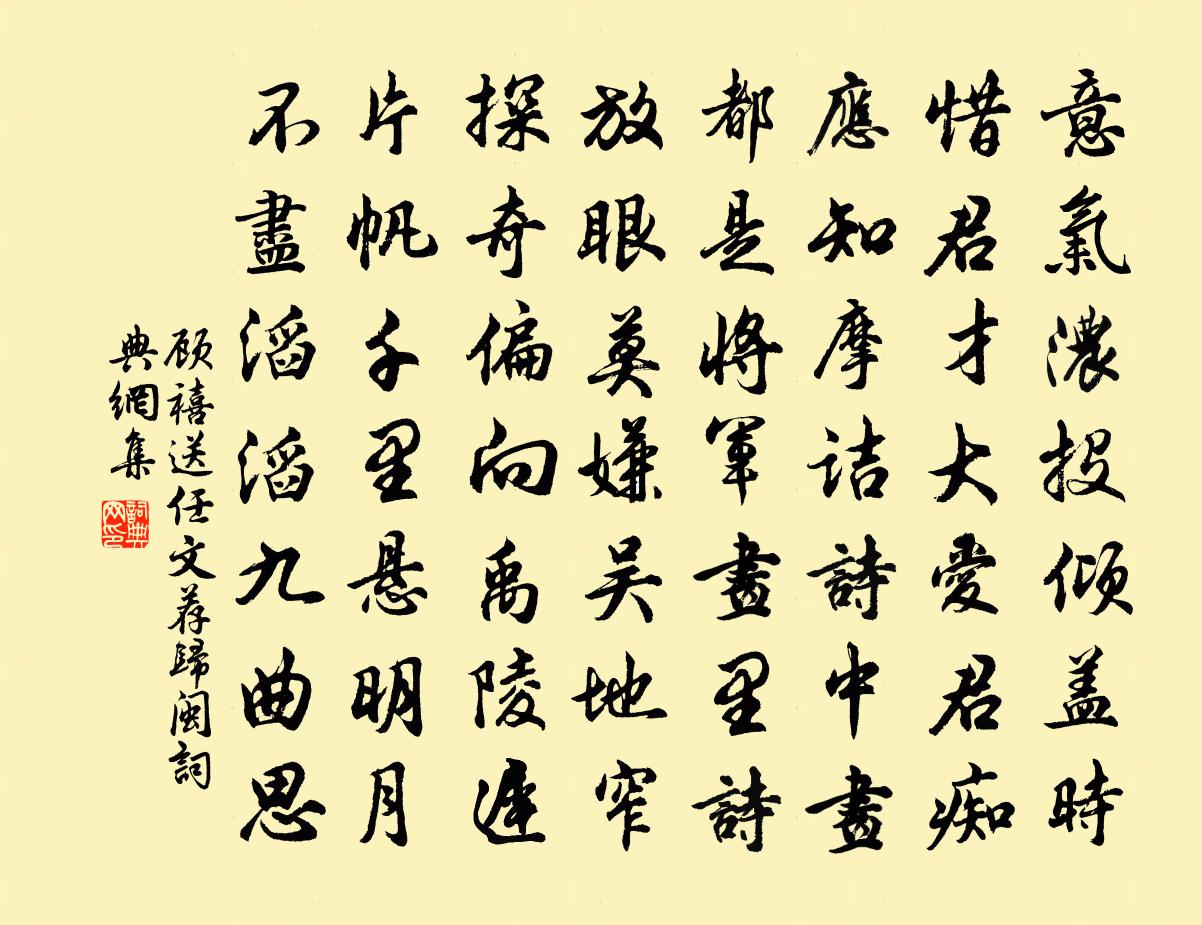 意氣濃投傾盖時
惜君才大愛君痴
應知摩詰詩中畫
都是將軍畫里詩
放眼莫嫌吴地窄
探奇偏向禹陵遲
片帆千里悬明月
不盡滔滔九曲思
顾禧送任文荐歸闽詞
典網集
詞典
网印